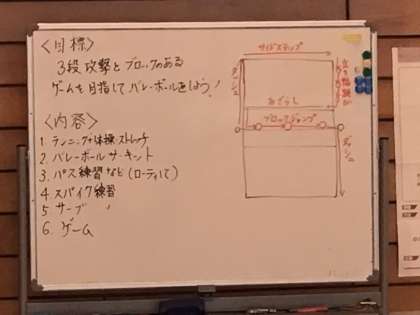 〈目標〉
3段攻撃とブロックのある
ゲームを目指してバレーボールをしよう!
〈内容〉
1. ランニング体操ストレッチ
2. バレーボールサーキット
3. パス練習など(ローテして)
4. スパイク練習
5 サーブ 〃
6. ゲーム
サイドステップ
ダッシュ
ブロックジャンプ
ダッシュ